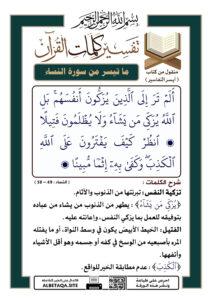 بسم الله الرحمن الرحيم
تفسير كلمات القرآن
منقول من كتاب
( أيسر التفاسير )
ما تيسر من سورة النساء
أَلَمْ تَرَ إِلَى الَّذِينَ يُزَكُّونَ أَنفُسَهُمْ بَلِ
اللَّهُ يُزَكِّي مَن يَشَاءُ وَلَا يُظْلَمُونَ فَتِيلًا
انظُرْ كَيْفَ يَفْتَرُونَ عَلَى اللَّهِ
الْكَذِبَ وَكَفَى بِهِ إِثْمًا مُّبِينًا
شرح الكلمات : ( النساء : 49 - 50 )
تزكية النفس : تبرئتها من الذنوب والآثام.
﴿يُزَكِّي مَن يَشَاءُ﴾ : يطهر من الذنوب من يشاء من عباده
بتوفيقه للعمل بما يزكي النفس، وإعانته عليه.
الفتيل : الخيط الأبيض يكون في وسط النواة، أو ما يفتله
المرء بأصبعيه من الوسخ في كفه أو جسمه وهو أقل الأشياء
وأتفهها.
﴿الْكَذِبَ﴾ : عدم مطابقة الخبر للواقع
ALBETAQA.SITE